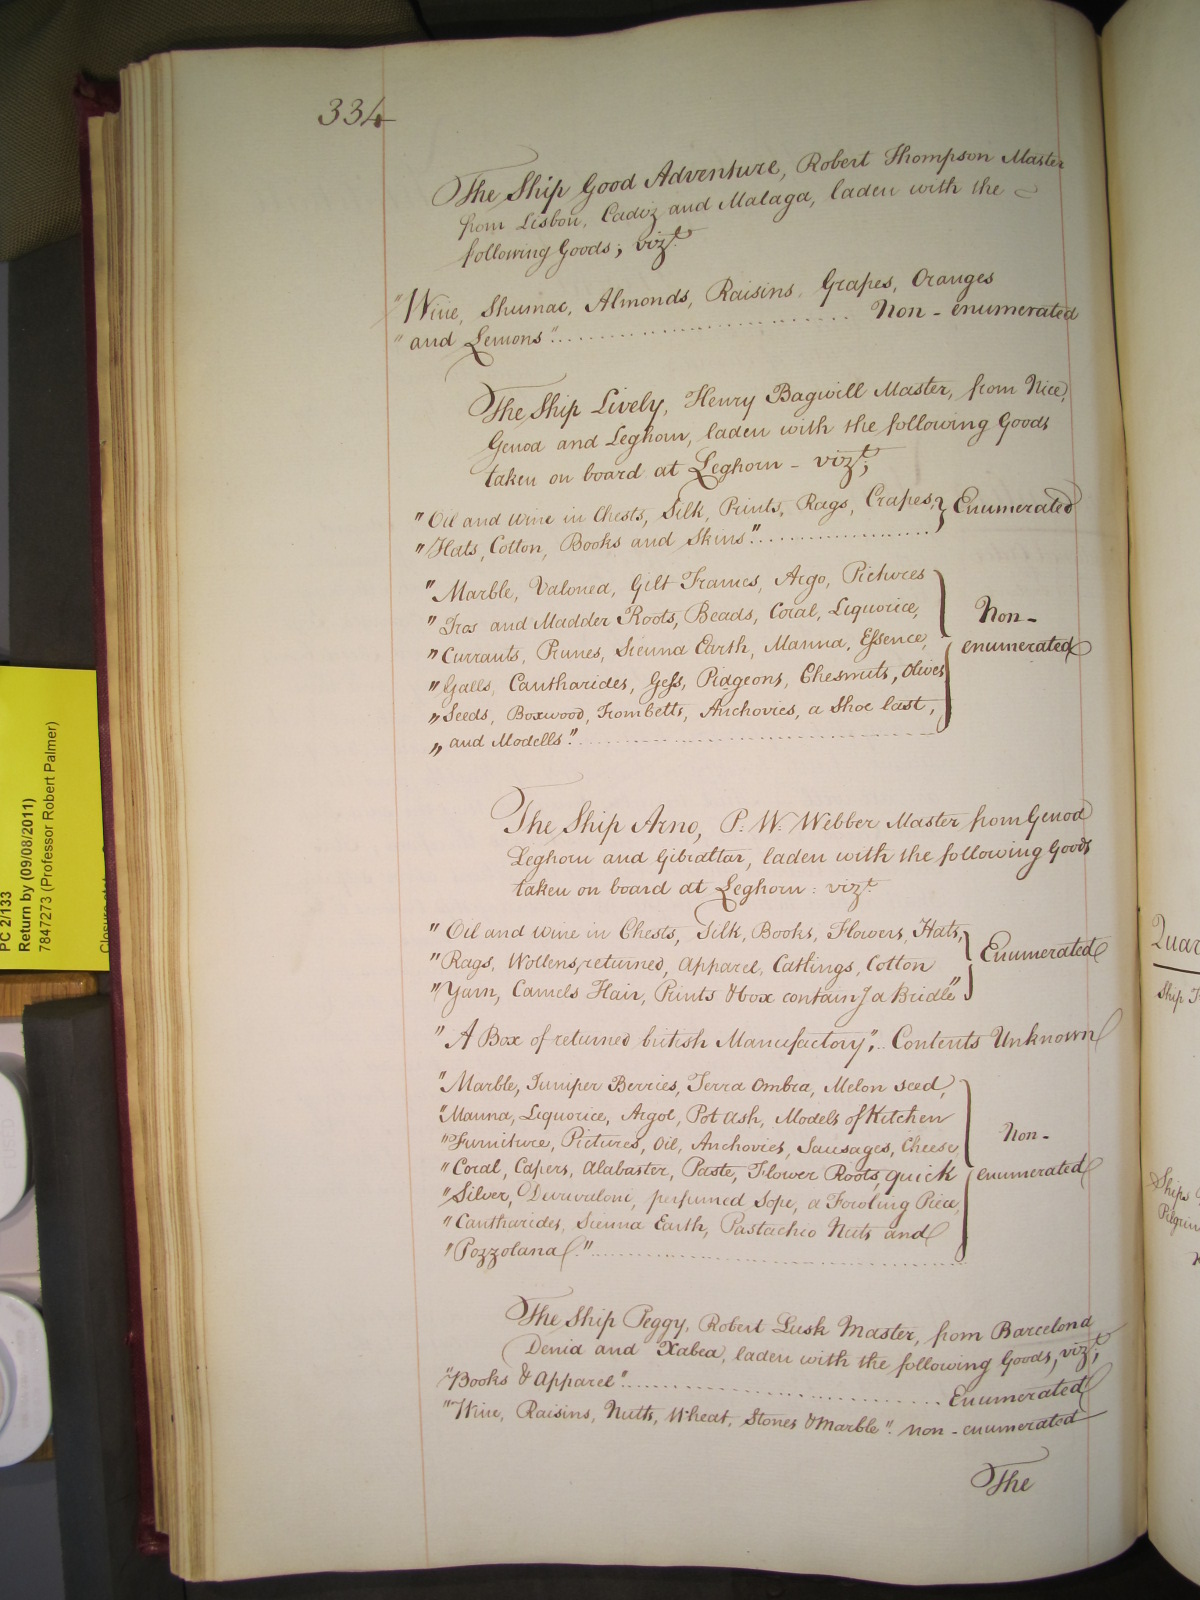 334
The Ship Good Adventure, Robert Thompson Master
from Lisbon, Cadiz and Malaga, laden with the
following Goods; vizt.
"Wine, Shumac, Almonds, Raisins, Grapes, Oranges
"and Lemons" Non-enumerated
The Ship Lively, Henry Bagwill Master, from Nice,
Genoa and Leghorn, laden with the following Goods
taken on board at Leghorn - vizt;
"Oil and wine in Chests, Silk, Prints, Rags, Crapes, Enumerated
"Hats, Cotton, Books and Skins"
"Marble, Valonea, Gilt Frames, Argo, Pictures
"Iros and Madder Roots, Beads, Coral, Liquorice, Non-
"Currants, Prunes, Sienna Earth, Manna, Essence, enumerated
"Galls, Cantharides, Gess, Pidgeons, Chesnuts, Olives
"Seeds, Boxwood, Trombetts, Anchovies, a Shoe last,
"and Modells"
The Ship Arno, P. W. Webber Master from Genoa
Leghorn and Gibraltar, laden with the following Goods
taken on board at Leghorn: vizt.
"Oil and wine in Chests, Silk, Books, Flowers, Hats,
"Rags, Wollens, returned, Apparel, Catlings, Cotton Enumerated
"Yarn, Camels Hair, Prints & box contain] a Bridle"
"A Box of returned british Manufactory", Contents Unknown
"Marble, Juniper Berries, Terra Ombra, Melon seed,
"Manna, Liquorice, Argol, Pot ash, Models of Kitchen
"Furniture, Pictures, Oil, Anchovies, Sausages, Cheese, Non-
"Coral, Capers, Alabaster, Paste, Flower Roots, quick enumerated
"Silver, perfumed Sope, a Fowling Piece,
"Cantharides, Sienna Earth, Pastachio Nuts and
"Pozzolana."
The Ship Peggy, Robert Lusk Master, from Barcelona
Denia and Xabea, laden with the following Goods, vizt;
"Books & Apparel" Enumerated
"Wine, Raisins, Nutts, Wheat, Stones & Marble". non-enumerated
The
PC 2/133
Return by (09/08/2011)
7847273 (Professor Robert Palmer)
Quar
Ship
Ships
Pilgrim